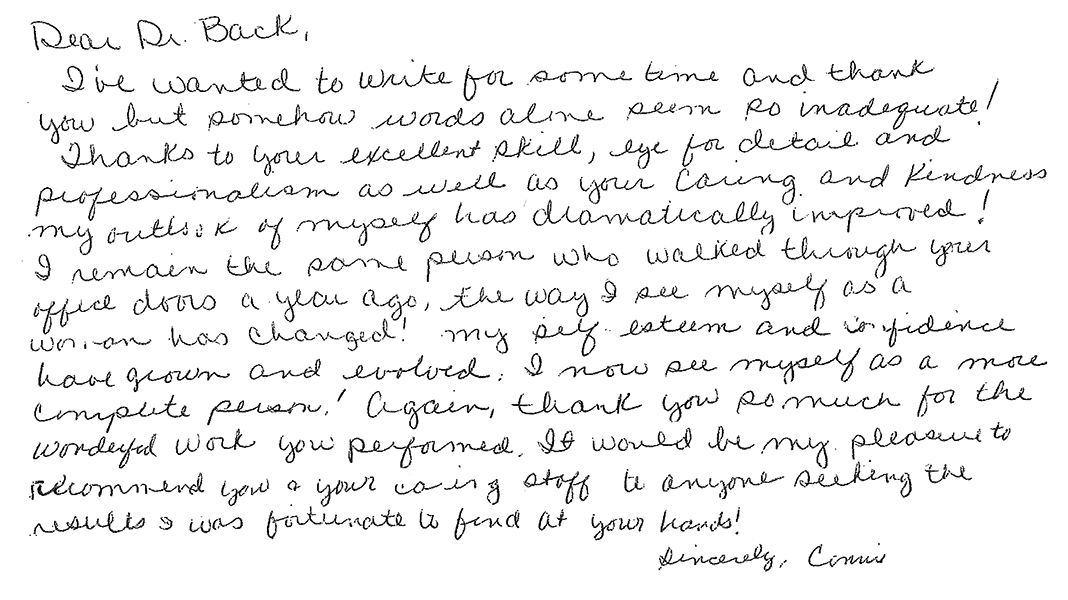 Dear Dr. Back,
I've wanted to write for some time and thank
you but somehow words alone seem so inadequate!
Thanks to your excellent skill, eye for detail and
professionalism as well as your caring and kindness
my outlook of myself has dramatically improved!
I remain the same person who walked through your
office doors a year ago, the way I see myself as a
woman has changed! my self esteem and confidence
have grown and evolved. I now see myself as a more
complete person! Again, thank you so much for the
wonderful work you performed. It would be my pleasure to
recommend you & your caring staff to anyone seeking the
results I was fortunate to find at your hands!
Sincerely, Connie